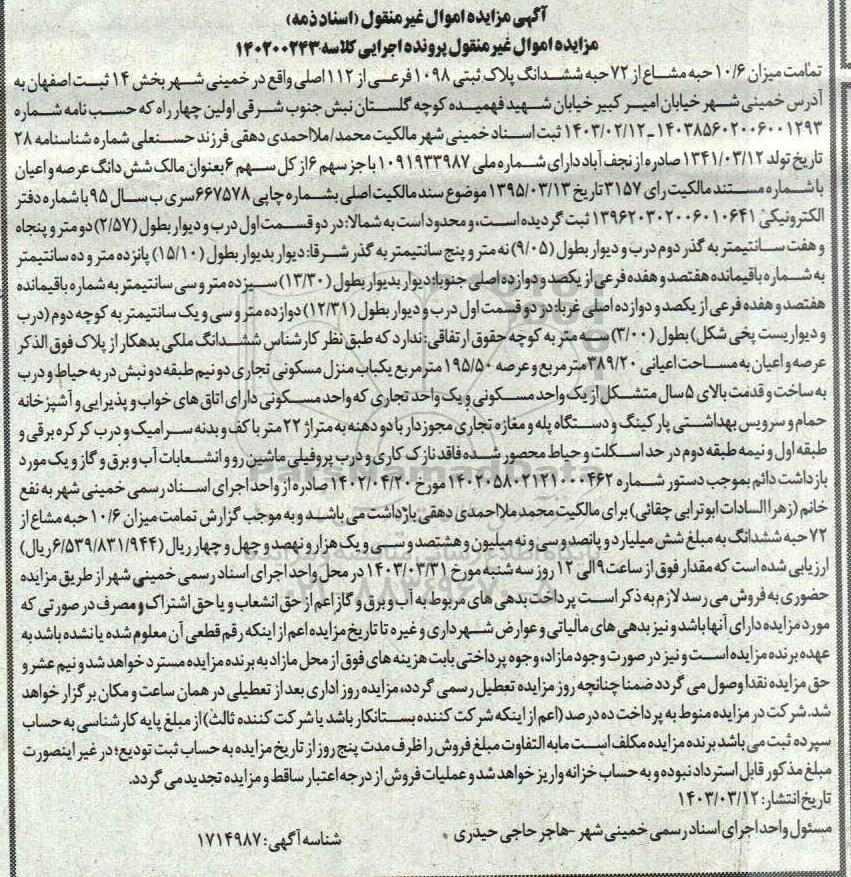 آگهی مزایده اموال غیر منقول (اسناد ذمه)
مزایده اموال غیر منقول پرونده اجرایی کلاسه ۱۴۰۲۰۰۲۴۳
تمامت میزان ۱۰/۶ حبه مشاع از ۷۲ حبه ششدانگ پلاک ثبتی ۱۰۹۸ فرعی از ۱۱۲ اصلی واقع در خمینی شهر بخش ۱۴ ثبت اصفهان به
آدرس خمینی شهر خیابان امیر کبیر خیابان شهید فهمیده کوچه گلستان نبش جنوب شرقی اولین چهار راه که حسب نامه شماره
۱۴۰۳۸۵۶۰۲۰۰۶۰۰۱۲۹۳ ـ ۱۴۰۳/۰۲/۱۲ ثبت اسناد خمینی شهر مالکیت محمد/ملااحمدی دهقی فرزند حسنعلی شماره شناسنامه ۲۸
تاریخ تولد ۱۳۴۱/۰۳/۱۲ صادره از نجف آباد دارای شماره ملی ۱۰۹۱۹۳۳۹۸۷ با جز سهم ۶ از کل سهم ۶ بعنوان مالک شش دانگ عرصه و اعیان
با شماره مستند مالکیت رای ۳۱۵۷ تاریخ ۱۳۹۵/۰۳/۱۳ موضوع سند مالکیت اصلی بشماره چاپی ۶۶۷۵۷۸ سری ب سال ۹۵ با شماره دفتر
الکترونیکی ۱۳۹۶۲۰۳۰۲۰۰۶۰۱۰۶۴۱ ثبت گردیده است، و محدود است به شمالا: در دو قسمت اول درب و دیوار بطول (۲/۵۷) دو متر و پنجاه
و هفت سانتیمتر به گذر دوم درب و دیوار بطول (۹/۰۵) نه متر و پنج سانتیمتر به گذر شرقا: دیوار بدیوار بطول (۱۵/۱۰) پانزده متر و ده سانتیمتر
به شماره باقیمانده هفتصد و هفده فرعی از یکصد و دوازده اصلی جنوبا: دیوار بدیوار بطول (۱۳/۳۰) سیزده متر و سی سانتیمتر به شماره باقیمانده
هفتصد و هفده فرعی از یکصد و دوازده اصلی غربا: در دو قسمت اول درب و دیوار بطول (۱۲/۳۱) دوازده متر و سی و یک سانتیمتر به کوچه دوم (درب
و دیواریست پخی شکل) بطول (۳/۰۰) سه متر به کوچه حقوق ارتفاقی: ندارد که طبق نظر کارشناس ششدانگ ملکی بدهکار از پلاک فوق الذکر
عرصه و اعیان به مساحت اعیانی ۳۸۹/۲۰ متر مربع و عرصه ۱۹۵/۵۰ متر مربع یکباب منزل مسکونی تجاری دو نیم طبقه دو نبش در به حیاط و درب
به ساخت و قدمت بالای ۵ سال متشکل از یک واحد مسکونی و یک واحد تجاری که واحد مسکونی دارای اتاق های خواب و پذیرایی و آشپزخانه
حمام و سرویس بهداشتی پارکینگ و دستگاه پله و مغازه تجاری مجوزدار با دو دهنه به متراژ ۲۲ متر با کف و بدنه سرامیک و درب کرکره برقی و
طبقه اول و نیمه طبقه دوم در حد اسکلت و حیاط محصور شده فاقد نازک کاری و درب پروفیلی ماشین رو و انشعابات آب و برق و گاز و یک مورد
بازداشت دائم بموجب دستور شماره ۱۴۰۲۰۵۸۰۲۱۲۱۰۰۰۴۶۲ مورخ ۱۴۰۲/۰۴/۲۰ صادره از واحد اجرای اسناد رسمی خمینی شهر به نفع
خانم (زهرا السادات ابوترابی چقائی) برای مالکیت محمد ملااحمدی دهقی بازداشت می باشد و به موجب گزارش تمامت میزان ۱۰/۶ حبه مشاع از
۷۲ حبه ششدانگ به مبلغ شش میلیارد و پانصد و سی و نه میلیون و هشتصد و سی و یک هزار و نهصد و چهل و چهار ریال (۶/۵۳۹/۸۳۱/۹۴۴ ریال)
ارزیابی شده است که مقدار فوق از ساعت ۹ الی ۱۲ روز سه شنبه مورخ ۱۴۰۳/۰۳/۳۱ در محل واحد اجرای اسناد رسمی خمینی شهر از طریق مزایده
حضوری به فروش می رسد لازم به ذکر است پرداخت بدهی های مربوط به آب و برق و گاز اعم از حق انشعاب و یا حق اشتراک و مصرف در صورتی که
مورد مزایده دارای آنها باشد و نیز بدهی های مالیاتی و عوارض شهرداری و غیره تا تاریخ مزایده اعم از اینکه رقم قطعی آن معلوم شده یا نشده باشد به
عهده برنده مزایده است و نیز در صورت وجود مازاد، وجوه پرداختی بابت هزینه های فوق از محل مازاد به برنده مزایده مسترد خواهد شد و نیم عشر و
حق مزایده نقدا وصول می گردد ضمنا چنانچه روز مزایده تعطیل رسمی گردد، مزایده روز اداری بعد از تعطیلی در همان ساعت و مکان برگزار خواهد
شد. شرکت در مزایده منوط به پرداخت ده درصد (اعم از اینکه شرکت کننده بستانکار باشد یا شرکت کننده ثالث) از مبلغ پایه کارشناسی به حساب
سپرده ثبت می باشد برنده مزایده مکلف است مابه التفاوت مبلغ فروش را ظرف مدت پنج روز از تاریخ مزایده به حساب ثبت تودیع؛ در غیر اینصورت
مبلغ مذکور قابل استرداد نبوده و به حساب خزانه واریز خواهد شد و عملیات فروش از درجه اعتبار ساقط و مزایده تجدید می گردد.
تاریخ انتشار: ۱۴۰۳/۰۳/۱۲
مسئول واحد اجرای اسناد رسمی خمینی شهر - هاجر حاجی حیدری
شناسه آگهی: ۱۷۱۴۹۸۷